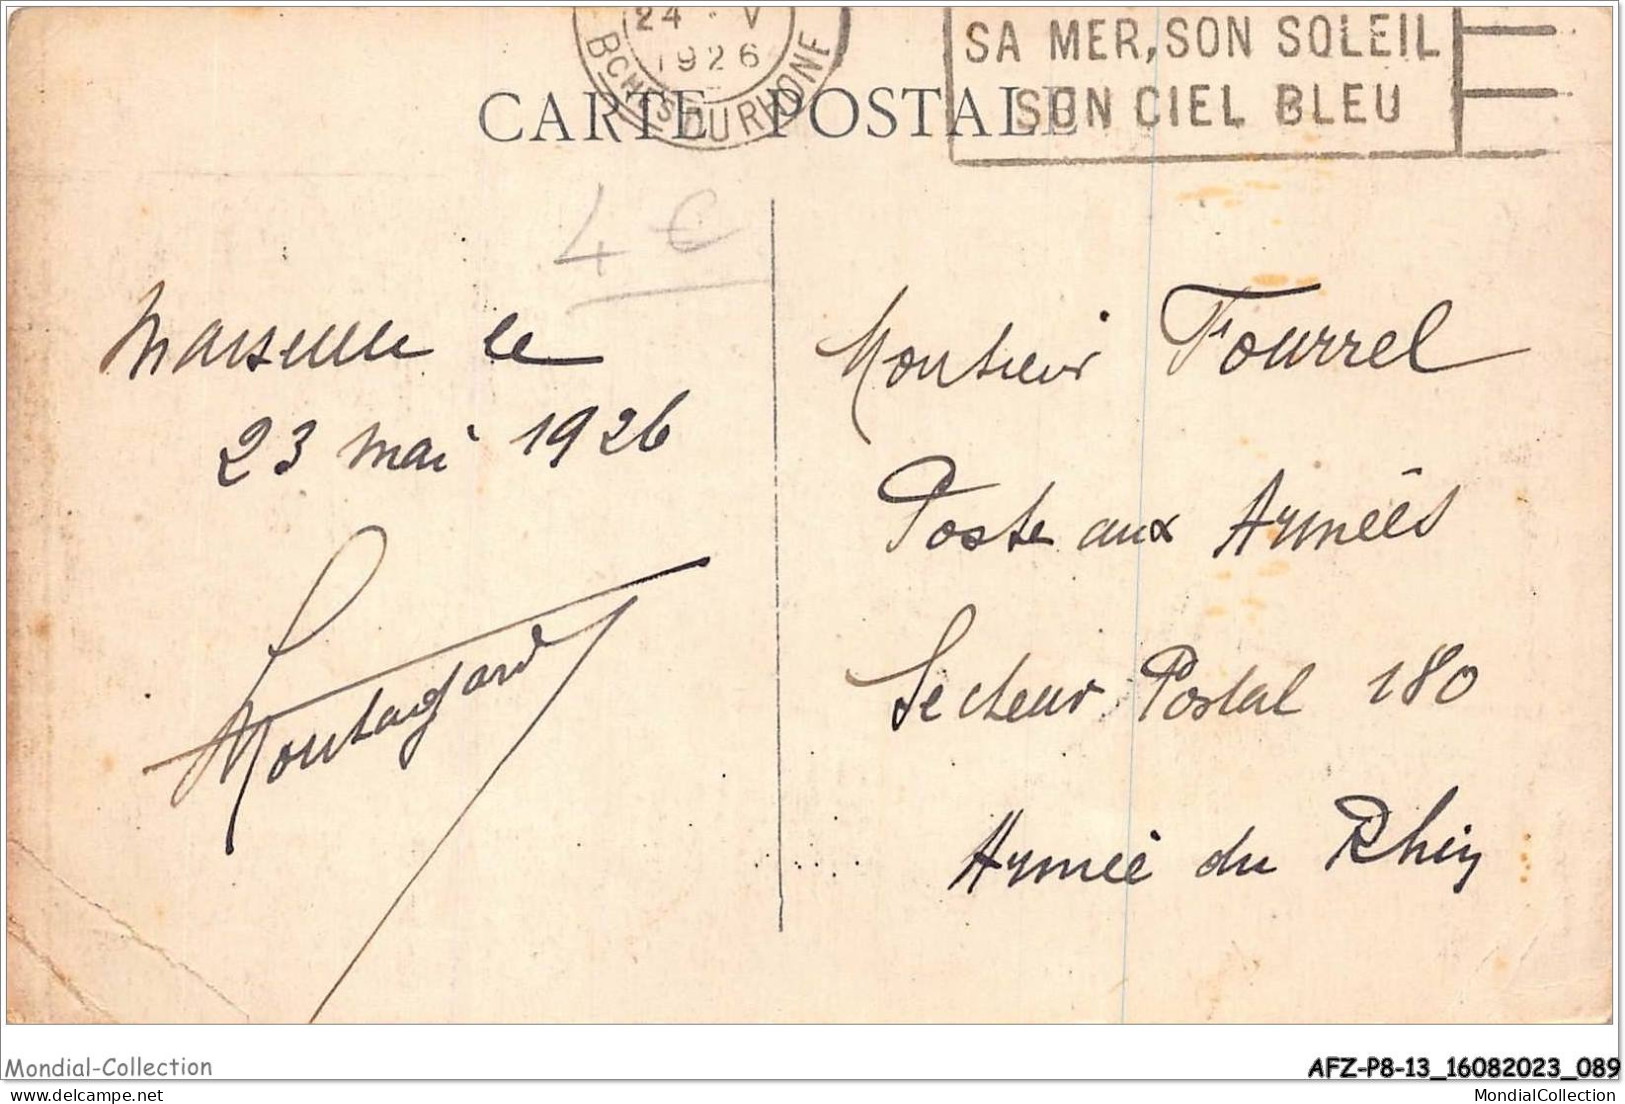 24 · V
1926
BCHES DU RHONE
SA MER, SON SOLEIL
SON CIEL BLEU
CARTE POSTALE
4 €
Marseille le
23 mai 1926
Montagard
Monsieur Fourrel
Poste aux Armées
Secteur Postal 180
Armée du Rhin
Mondial-Collection
AFZ-P8-13_16082023_089
delcampe.net
MondialCollection